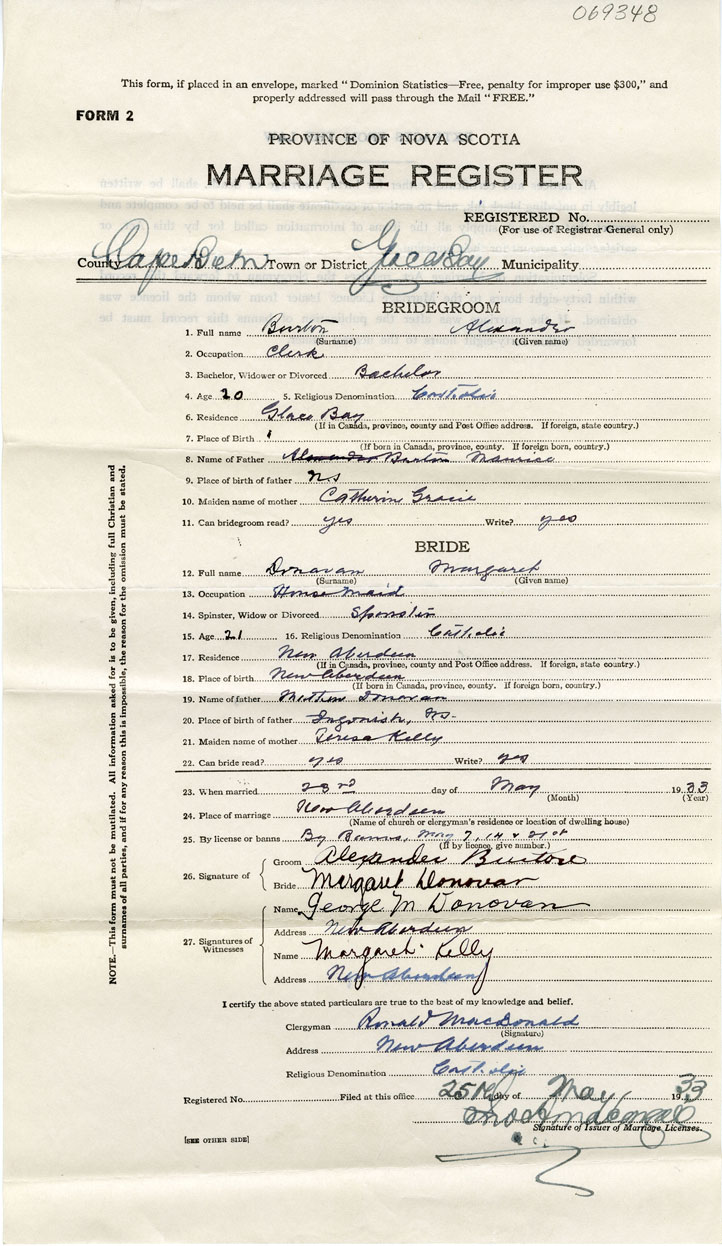 069348
This form, if placed in an envelope, marked "Dominion Statistics—Free, penalty for improper use $300," and
properly addressed will pass through the Mail "FREE."
FORM 2
PROVINCE OF NOVA SCOTIA
MARRIAGE REGISTER
REGISTERED No.
(For use of Registrar General only)
County Cape Breton Town or District Glace Bay Municipality
BRIDEGROOM
1. Full name Burton Alexander
(Surname) (Given name)
2. Occupation Clerk
3. Bachelor, Widower or Divorced Bachelor
4. Age 20 5. Religious Denomination Catholic
6. Residence Glace Bay
(If in Canada, province, county and Post Office address. If foreign, state country.)
7. Place of Birth "
(If born in Canada, province, county. If foreign born, country.)
8. Name of Father Alexander Burton Maurice
9. Place of birth of father N S
10. Maiden name of mother Catherin Gracie
11. Can bridegroom read? yes Write? yes
BRIDE
12. Full name Donovan Margaret
(Surname) (Given name)
13. Occupation House maid
14. Spinster, Widow or Divorced Spinster
15. Age 21 16. Religious Denomination Catholic
17. Residence New Aberdeen
(If in Canada, province, county and Post Office address. If foreign, state country.)
18. Place of birth New Aberdeen
(If born in Canada, province, county. If foreign born, country.)
19. Name of father Matthew Donovan
20. Place of birth of father Ingonish, NS.
21. Maiden name of mother Teresa Kelly
22. Can bride read? yes Write? yes
23. When married 23rd day of May 1933
(Month) (Year)
24. Place of marriage New Aberdeen
(Name of church or clergyman's residence or location of dwelling house)
25. By license or banns By Banns, May 7, 14 & 21st
(If by licence, give number.)
26. Signature of
Groom Alexander Burton
Bride Margaret Donovan
27. Signatures of Witnesses
Name George M Donovan
Address New Aberdeen
Name Margaret Kelly
Address New Aberdeen
I certify the above stated particulars are true to the best of my knowledge and belief.
Clergyman Ronald MacDonald
(Signature)
Address New Aberdeen
Religious Denomination Catholic
Registered No. Filed at this office 25th day of May 1933
Signature of Issuer of Marriage Licenses.
[SEE OTHER SIDE]
NOTE.—This form must not be mutilated. All information asked for is to be given, including full Christian and
surnames of all parties, and if for any reason this is impossible, the reason for the omission must be stated.